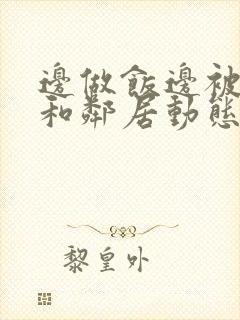 邊做飯邊被
和鄰居動態
黎皇外